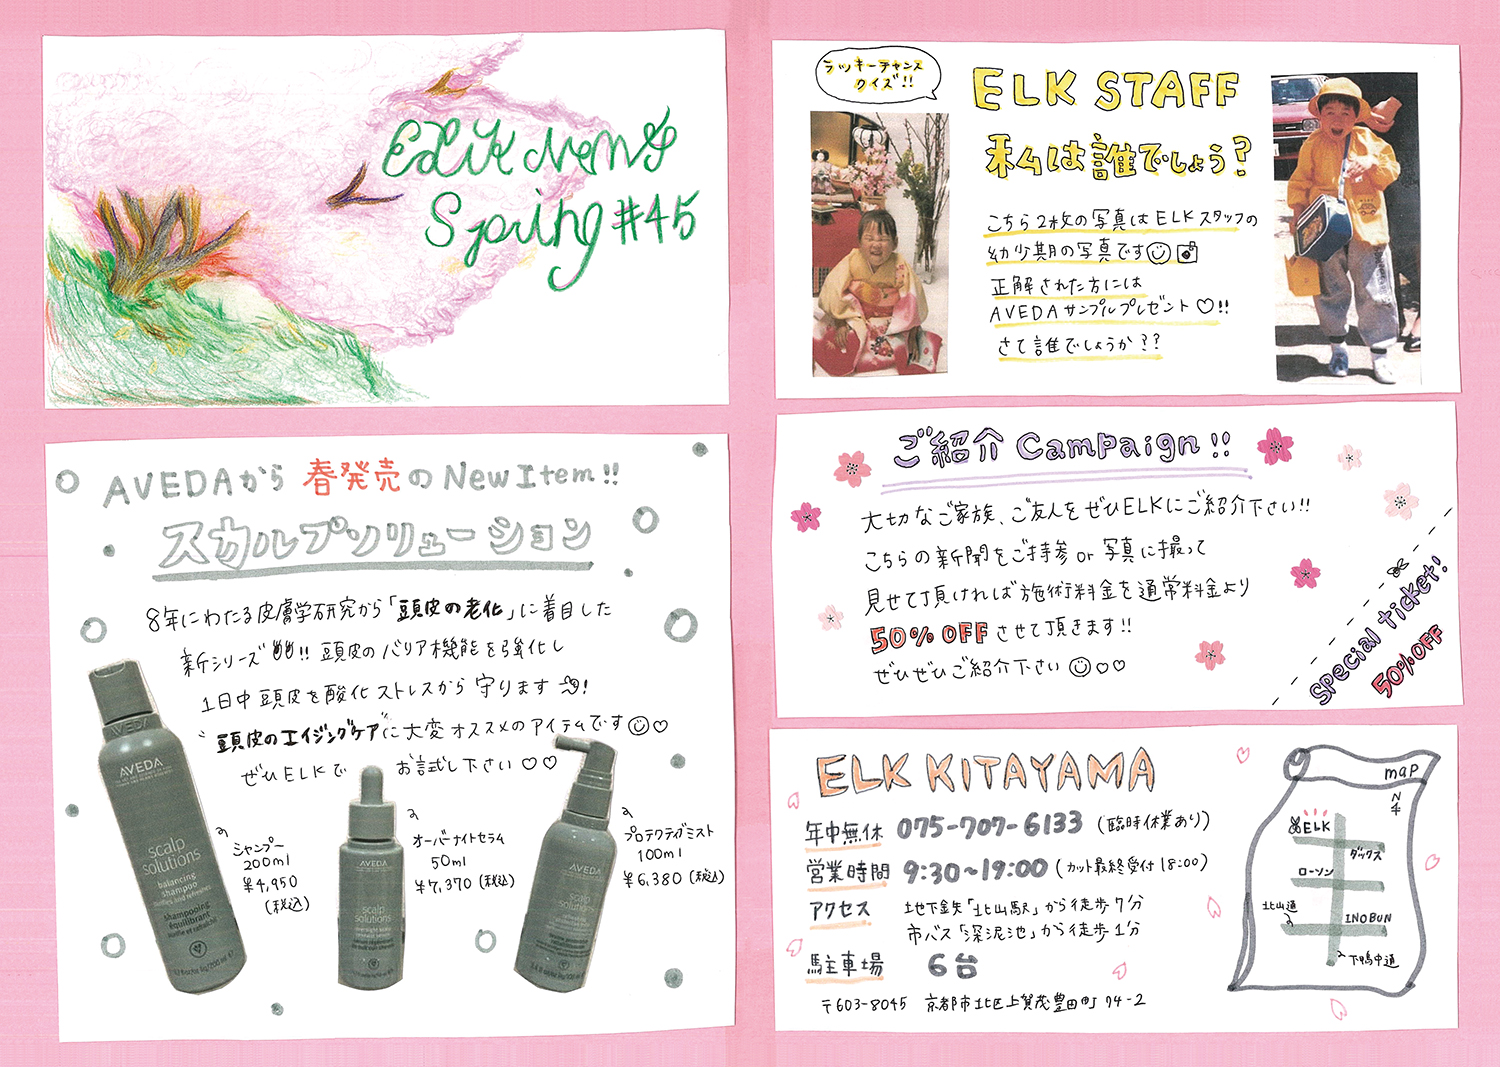 ELK News
Spring #45
AVEDAから 春発売のNew Item!!
スカルプソリューション
8年にわたる皮膚学研究から「頭皮の老化」に着目した
新シリーズ!! 頭皮のバリア機能を強化し
1日中頭皮を酸化ストレスから守ります!
"頭皮のエイジングケア"に大変オススメのアイテムです
ぜひELKで お試し下さい♡♡
シャンプー
200ml
¥4,950
(税込)
オーバーナイトセラム
50ml
¥7,370(税込)
プロテクティブミスト
100ml
¥6,380(税込)
AVEDA
AVEDA
scalp
solutions
balancing
shampoo
shampooing
équilibrant
AVEDA
scalp
solutions
AVEDA
scalp
solutions
ラッキーチャンス
クイズ!!
ELK STAFF
私は誰でしょう?
こちら2枚の写真はELKスタッフの
幼少期の写真です
正解された方には
AVEDAサンプルプレゼント♡!!
さて誰でしょうか??
ご紹介 Campaign!!
大切なご家族、ご友人をぜひELKにご紹介下さい!!
こちらの新聞をご持参or写真に撮って
見せて頂ければ施術料金を通常料金より
50%OFFさせて頂きます!!
ぜひぜひご紹介下さい♡♡
Special ticket!
50%OFF
ELK KITAYAMA
年中無休 075-707-6133 (臨時休業あり)
営業時間 9:30~19:00 (カット最終受付18:00)
アクセス 地下鉄「北山駅」から徒歩7分
市バス「深泥池」から徒歩1分
駐車場 6台
〒603-8045 京都市北区上賀茂豊田町74-2
map
N
ELK
ダックス
ローソン
北山通
INOBUN
下鴨中通